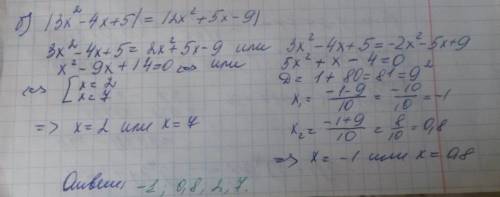 б) |3x² - 4x + 5| = |2x² + 5x - 9|
3x² - 4x + 5 = 2x² + 5x - 9 или 3x² - 4x + 5 = -2x² - 5x + 9
x² - 9x + 14 = 0 ⇔ или 5x² + x - 4 = 0
⇔ [x = 2 x = 7 D = 1 + 80 = 81 = 9²
x₁ = (-1-9)/10 = -10/10 = -1
⇒ x = 2 или x = 7 x₂ = (-1+9)/10 = 8/10 = 0,8
⇒ x = -1 или x = 0,8
Ответ: -1; 0,8; 2; 7.